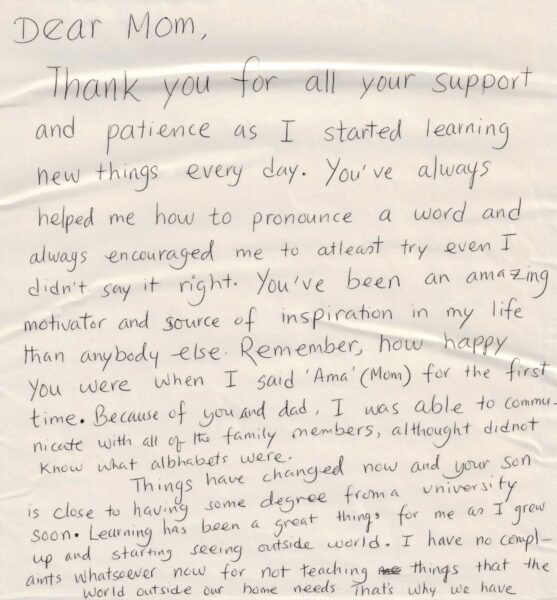 Dear Mom,
Thank you for all your support
and patience as I started learning
new things every day. You've always
helped me how to pronounce a word and
always encouraged me to atleast try even I
didn't say it right. You've been an amazing
motivator and source of inspiration in my life
than anybody else. Remember, how happy
you were when I said 'Ama' (Mom) for the first
time. Because of you and dad, I was able to commu-
nicate with all of the family members, althought didnot
know what albhabets were.
Things have changed now and your son
is close to having some degree from a university
soon. Learning has been a great things for me as I grew
up and starting seeing outside world. I have no compl-
aints whatsoever now for not teaching me things that the
world outside our home needs. That's why we have